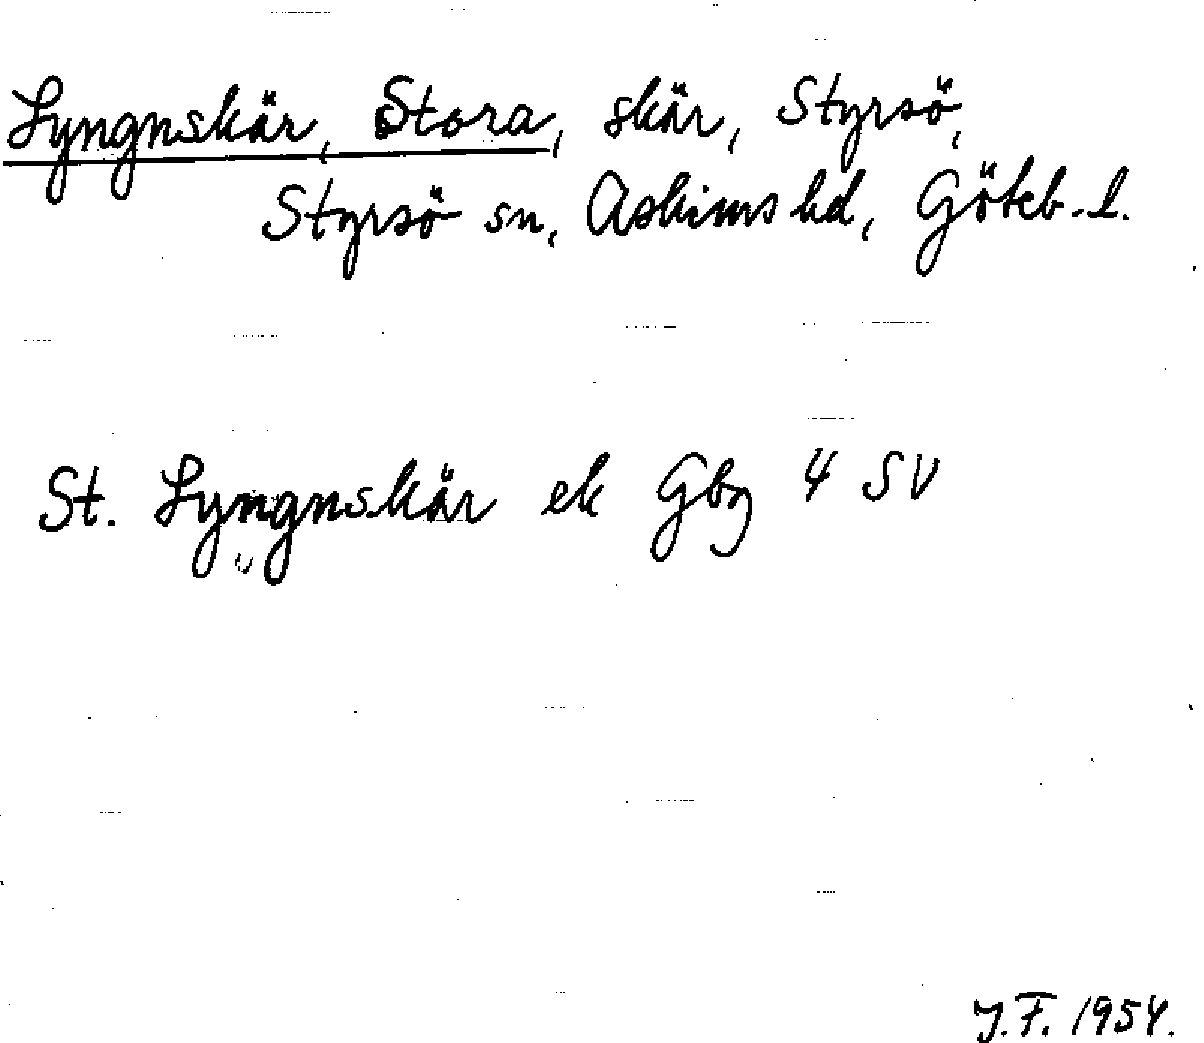 Lyngnskär, Stora, skär, Styrsö,
Styrsö sn, Askims hd, Göteb. l.
St. Lyngnskär ek Gbg 4 SV
J.F. 1954.